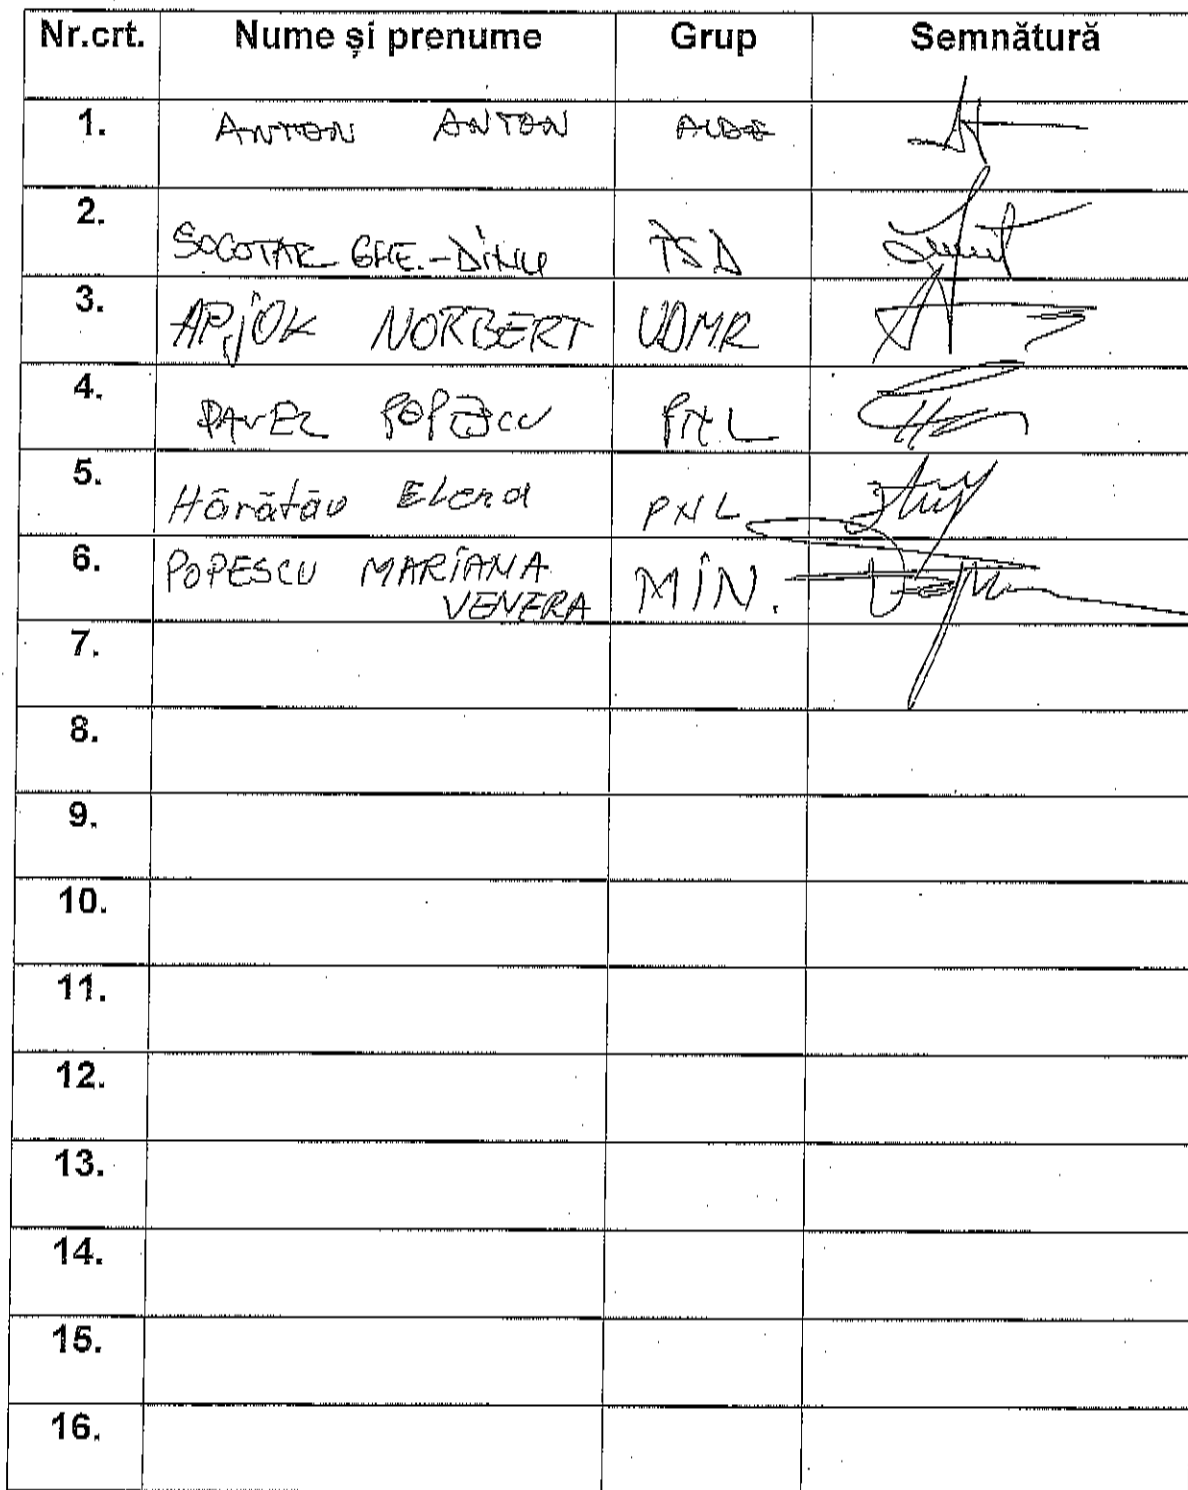 Nr.crt. Nume și prenume Grup Semnătură
1. ANTON ANTON ALDE
2. SOCOTAR GHE.-DINU PSD
3. APJOK NORBERT UDMR
4. PAVEL POPESCU PNL
5. Hărătău Elena PNL
6. POPESCU MARIANA MIN.
VENERA
7.
8.
9.
10.
11.
12.
13.
14.
15.
16.